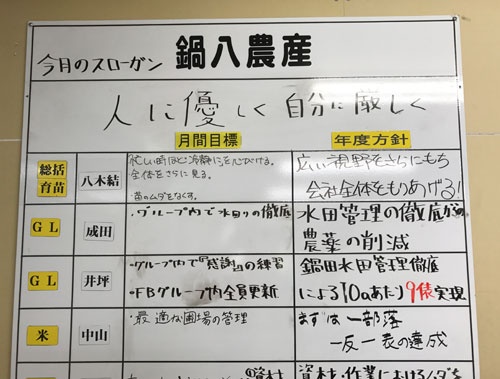 今月のスローガン 鍋八農産
人に優しく 自分に厳しく
月間目標 年度方針
総括
育苗
八木結
忙しい時ほど冷静にを心がける。
全体をさらに見る。
苗のムダをなくす。
広い視野をさらにもち
会社全体をもりあげる!
GL
成田
・グループ内で水回りの徹底
水田管理の徹底
農薬の削減
GL
井坪
・グループ内で『感謝』の練習
・FBグループ内全員更新
鍋田水田管理徹底
による10aあたり9俵実現
米
中山
・最適な圃場の管理
まずは一部落
一反一表の達成
資材
資材・作業におけるムダを